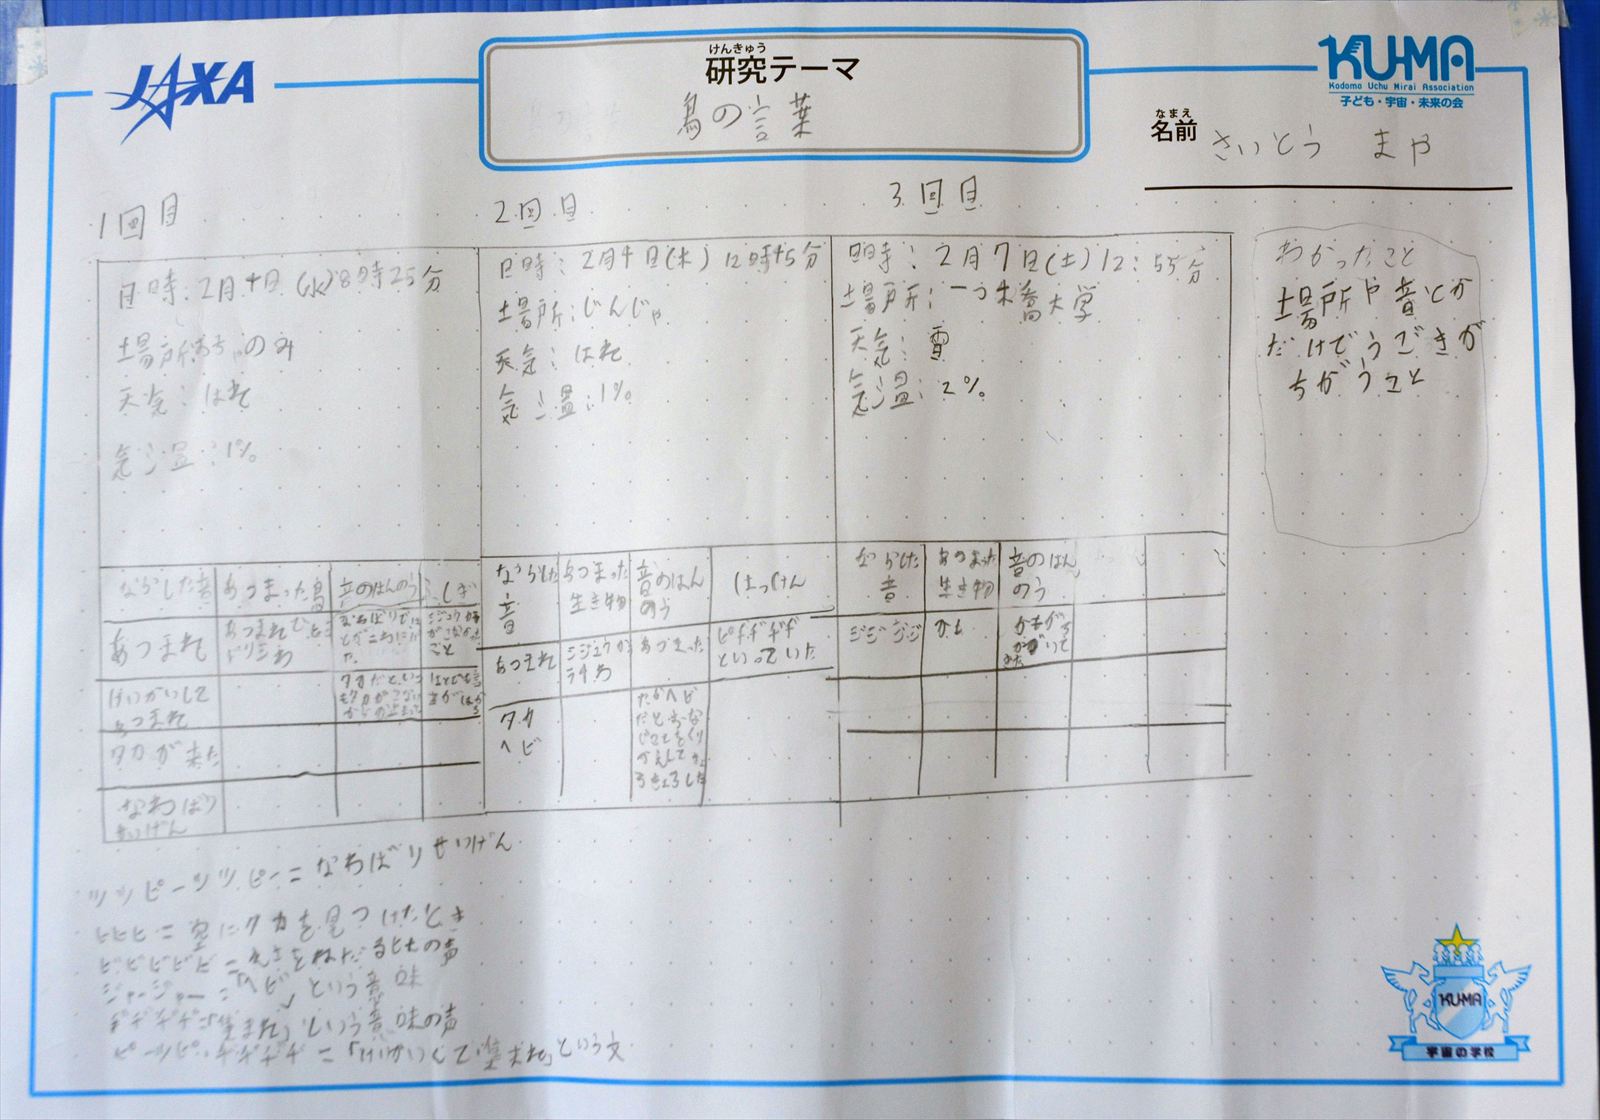 JAXA
けんきゅう
研究テーマ
鳥の言葉
KU-MA
Kodomo Uchu Mirai Association
子ども・宇宙・未来の会
なまえ
名前 さいとう まや
1回目
日時:2月4日(水)8時25分
場所:おちゃのみ
天気:はれ
気温:1%
ならした音 あつまった鳥 音のはんのう ふしぎ
あつまれ
けいかいして
あつまれ
タカが来た
なわばり
せいげん
2回目
日時:2月4日(水)12時45分
場所:じんじゃ
天気:はれ
気温:1%
ならした
音
あつまった
生き物
音のはん
のう
はっけん
あつまれ
シジュウカ
ラ4わ
あつまった
ピヂヂヂヂ
といっていた
タカ
ヘビ
3回目
日時:2月7日(土)12:55分
場所:一つ木橋大学
天気:雪
気温:2%
ならした
音
あつまった
生き物
音のはん
のう
ジジジジ
かも
わかったこと
場所や音とか
だけでうごきが
ちがうこと
ツツピーツツピー=なわばりせいげん
ヒヒヒ=空にタカを見つけたとき
ビビビビビ=えさをねだるときの声
ジャージャー=「ヘビ」という意味
ヂヂヂヂ=「集まれ」という意味の声
ピーツピ・ヂヂヂヂ=「けいかいして集まれ」という文
KU-MA
宇宙の学校